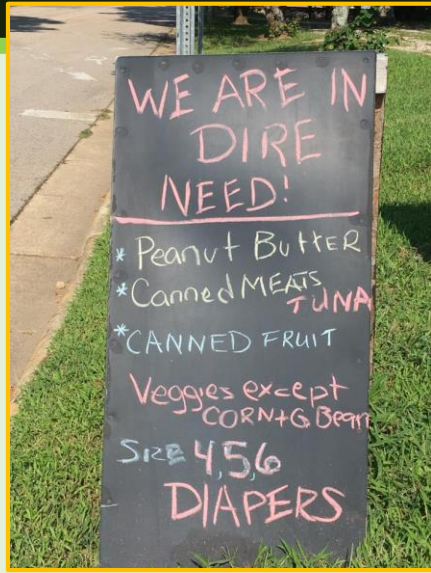 WE ARE IN
DIRE
NEED!
* Peanut Butter
* Canned MEATS
TUNA
* CANNED FRUIT
Veggies except
CORN+G Bean
SIZE 4,5,6
DIAPERS